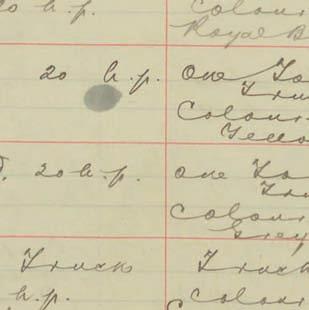 20 h.p. Colour
Royal B
20 h.p. One To
Tru
Colour
Yello
20 h.p. One To
Tru
Colour
Grey
Trucks Truck
h.p. Colour